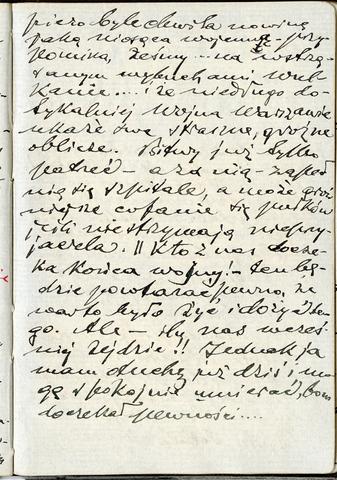 piero byle chwila nowiną
jaką niosąca wojenną przy
pomina, żeśmy... na wstrzą-
sanym wybuchami wul
kanie.... i że niedługo do-
tykalniej wojna Warszawie
ukaże swe straszne, groźne
oblicze. Bitwy już tylko
patrzeć – a za nią – zapeł
nią się szpitale, a może groź
niejsze cofanie się pułków
jeśli nie strzymają nieprzy-
jaciela. || Któż z nas docze-
ka końca wojny! – ten bę-
dzie powtarzać pewno, że
warto było żyć i dożyć te-
go. Ale – ilu nas wcześ-
niej zejdzie!! Jednak ja
mam otuchę już dziś i mo-
gę spokojnie umierać, bom
doczekał pewności....